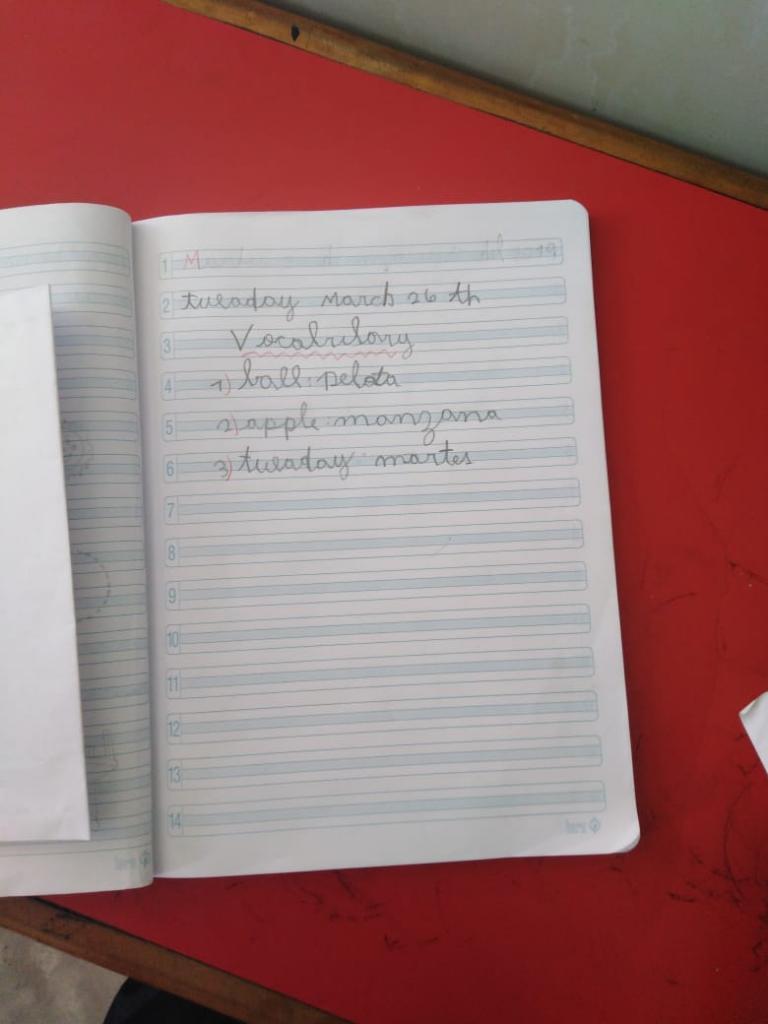 1 M del 2019
2 tuesday March 26 th
3 Vocabulary
4 1) ball: pelota
5 2) apple: manzana
6 3) tuesday: martes
7
8
9
10
11
12
13
14